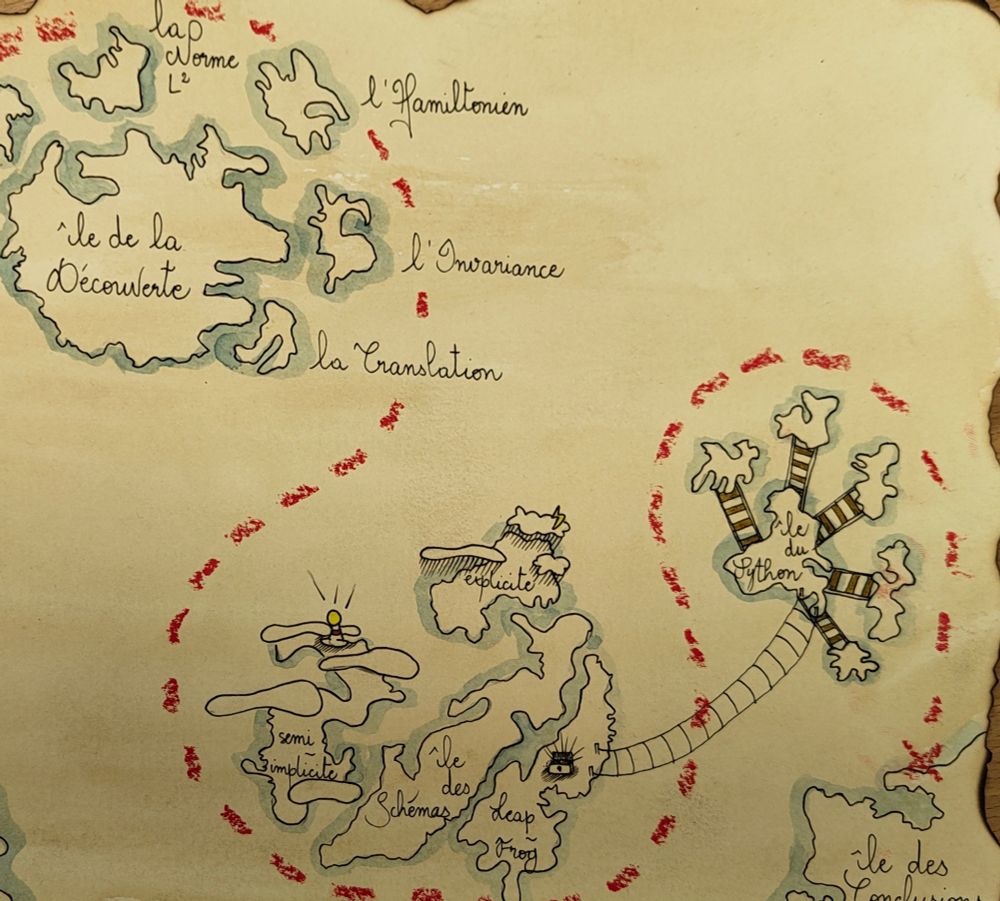 la
Norme
L²
l'Hamiltonien
île de la
Découverte
l'Invariance
la Translation
île
du
Python
explicite
semi
implicite
île
des
Schémas
Leap
Frog
île des
Conclusions